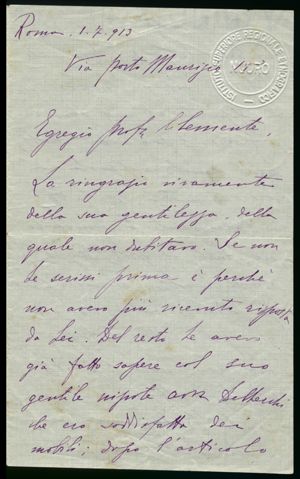 Roma, 1.7.913
Via Porto Maurizio
ISTITUTO SUPERIORE REGIONALE ETNOGRAFICO
NUORO
Egregio Prof. Clemente,
La ringrazio vivamente
della sua gentilezza, della
quale non dubitavo. Se non
Le scrissi prima è perché
non avevo più ricevuto risposta
da Lei. Del resto Le avevo
già fatto sapere col suo
gentile nipote avv.
che ero soddisfatta dei
mobili; dopo l'articolo